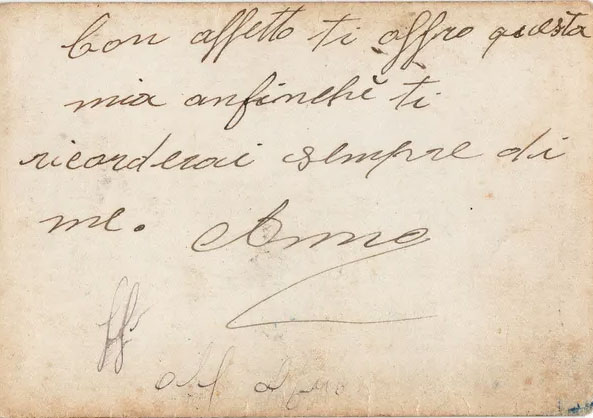 Con affetto ti offro questa
mia anfinchè ti
ricorderai sempre di
me. Anna